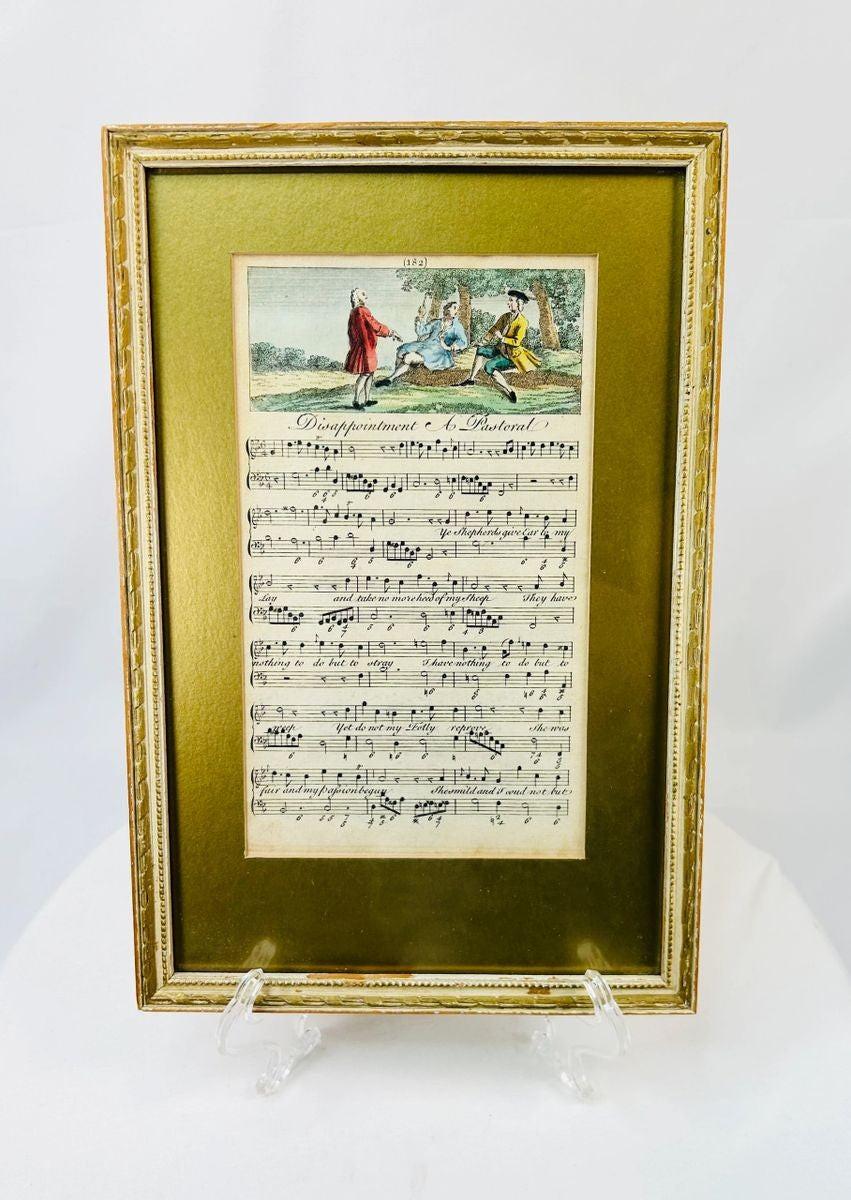 (182)
Disappointment A Pastoral
Ye Shepherds give Ear to my
Lay and take no more heed of my Sheep They have
nothing to do but to stray I have nothing to do but to
weep Yet do not my Folly reprove She was
fair and my Passion begun She smild and I coud not but